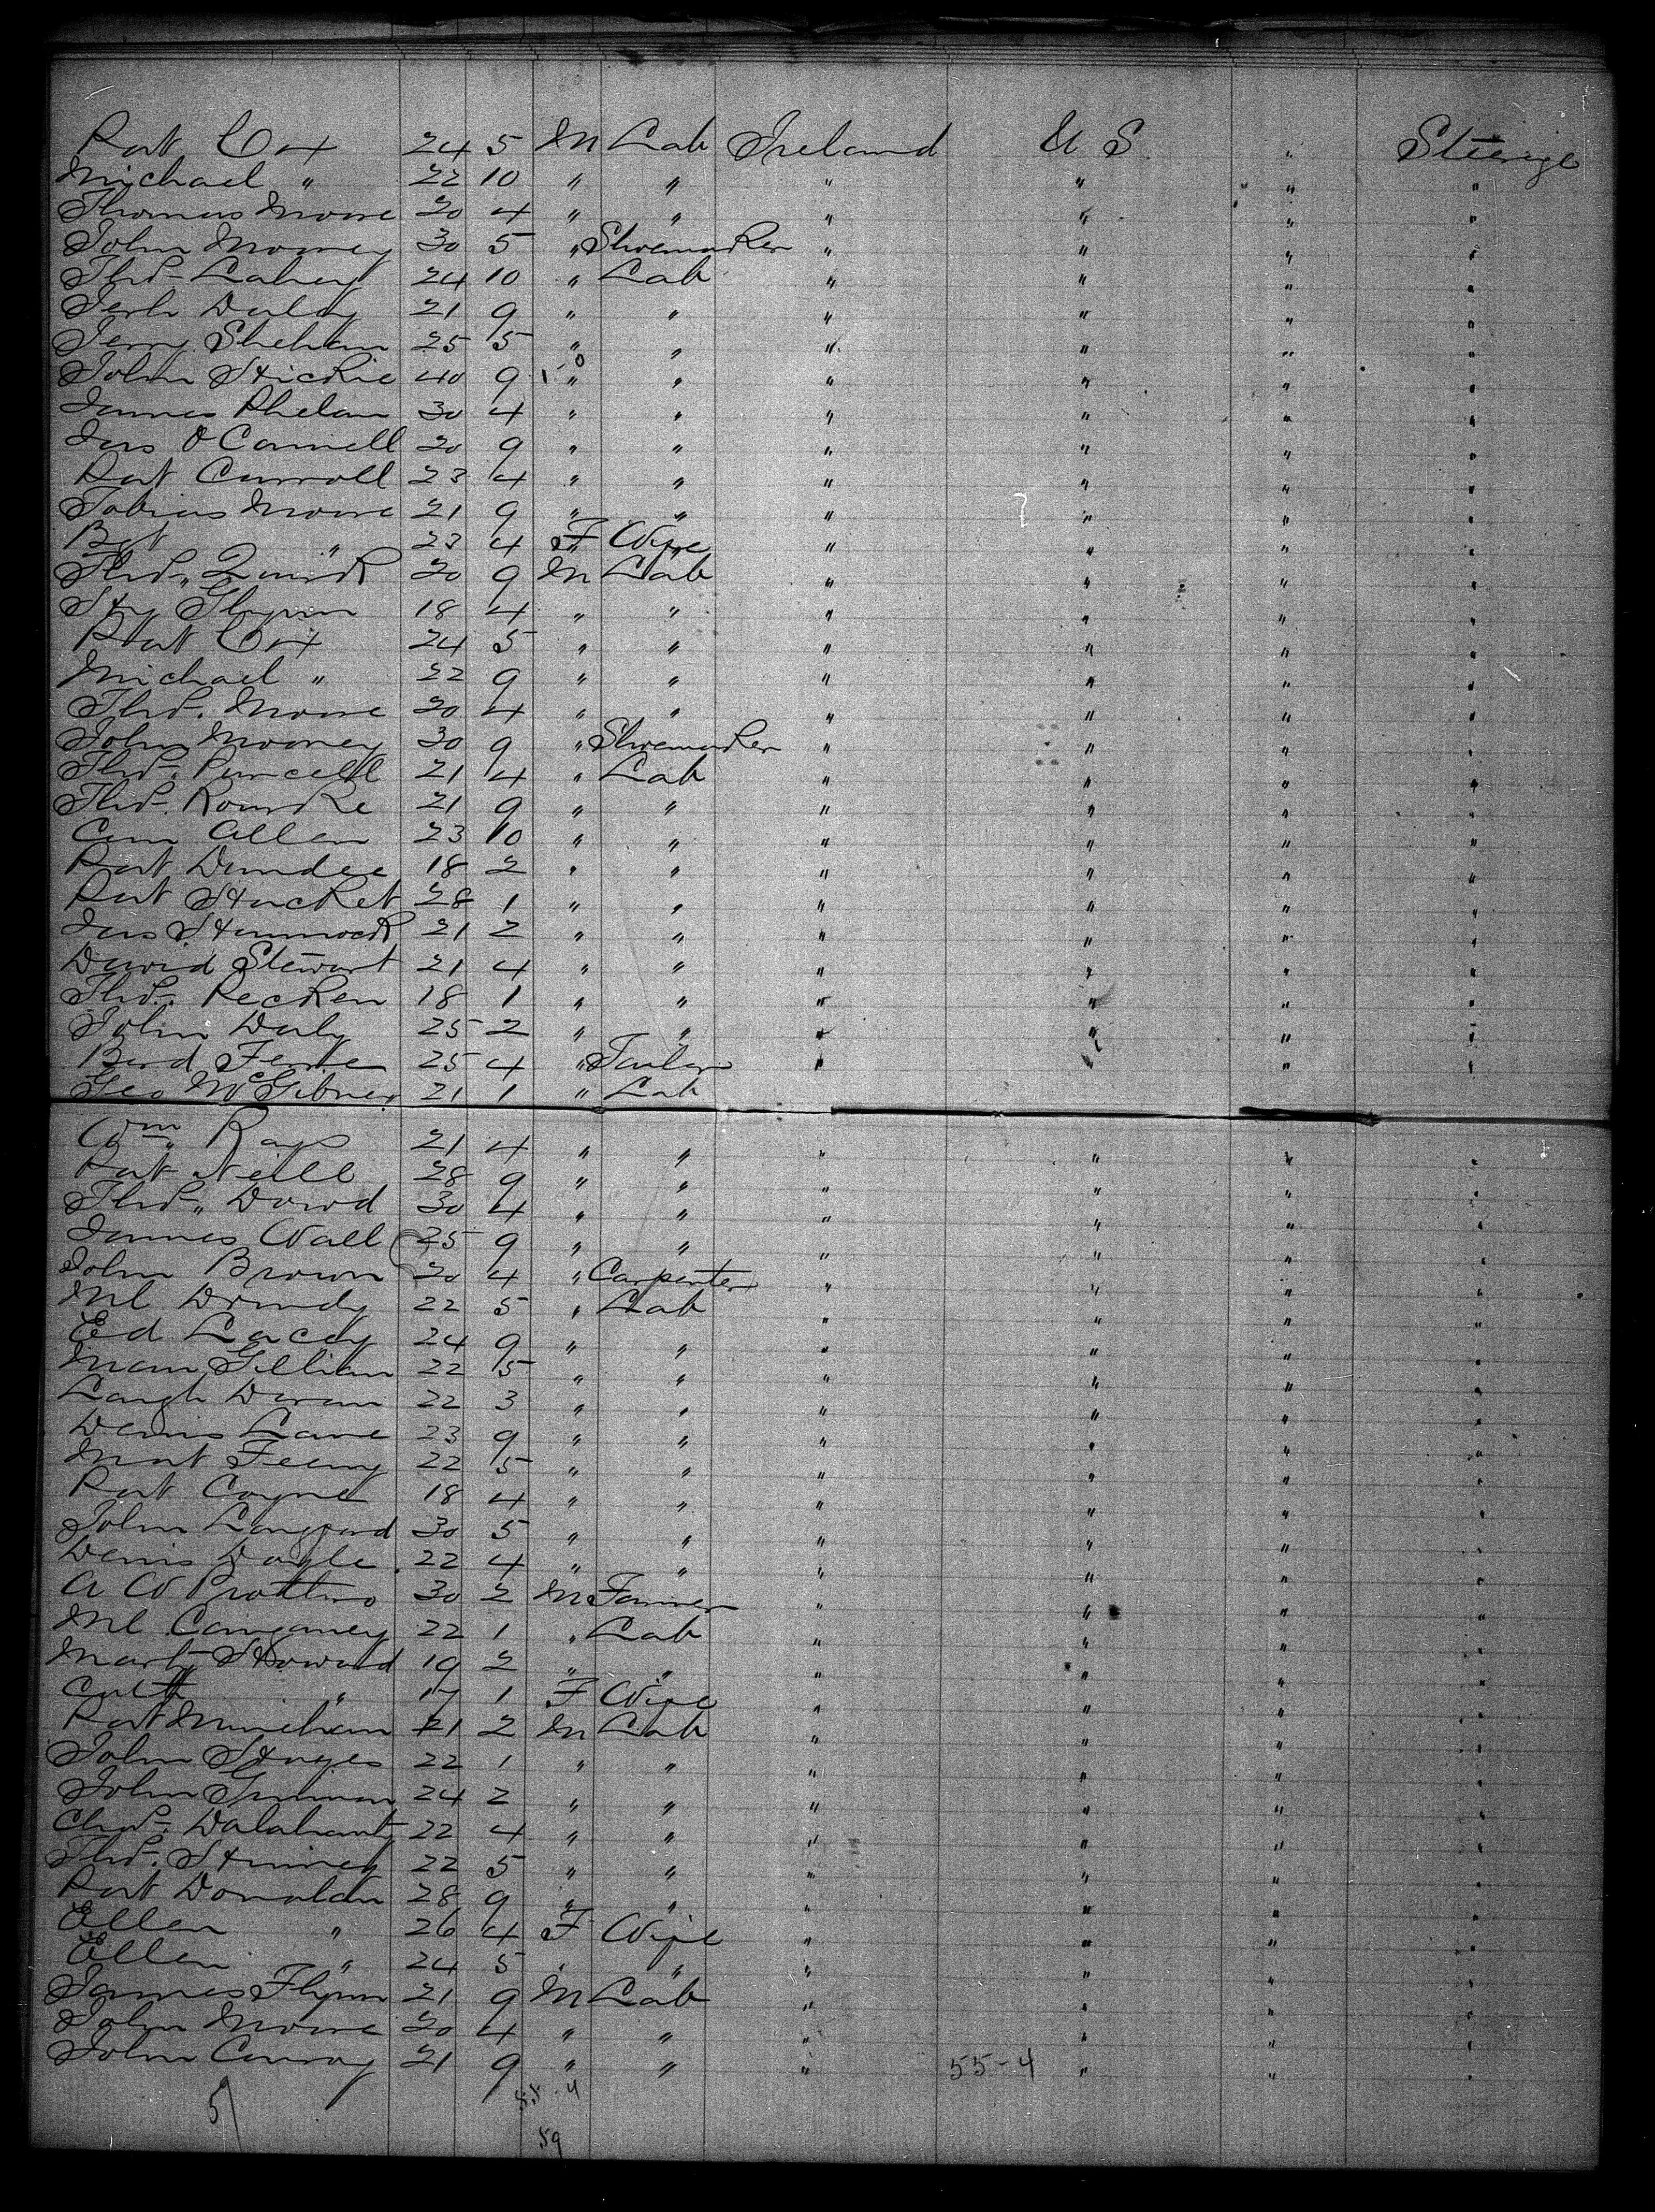 Pat Cox 24 5 M Lab Ireland U S " Steerage
Michael " 22 10 " " " " " "
Thomas Moore 20 4 " " " " " "
John Mooney 30 5 " Shoemaker " " " "
Thos. Lahey 24 10 " Lab " " " "
Jerh Daley 21 9 " " " " " "
Jerry Shehan 25 5 " " " " " "
John Hickie 40 9 " " " " " "
James Phelan 30 4 " " " " " "
Jas O'Connell 20 9 " " " " " "
Pat Carroll 23 4 " " " " " "
Tobias Moore 21 9 " " " " " "
Bgt " 23 4 F Wife " " " "
Thos. Quirk 20 9 M Lab " " " "
Hy Glynn 18 4 " " " " " "
Pat Cox 24 5 " " " " " "
Michael " 22 9 " " " " " "
Thos. Moore 20 4 " " " " " "
John Mooney 30 9 " Shoemaker " " " "
Thos. Purcell 21 4 " Lab " " " "
Thos. Rourke 21 9 " " " " " "
Allen 23 10 " " " " " "
Pat Dundee 18 2 " " " " " "
Pat Hacket 28 1 " " " " " "
Jas Hammock 21 2 " " " " " "
David Stewart 21 4 " " " " " "
Thos. 18 1 " " " " " "
John Daly 25 2 " " " " " "
Bernd 25 4 " Tailor " " " "
Geo McGibney 21 1 " Lab
Wm. Ray 21 4 " " " " " "
Pat Neill 28 9 " " " " " "
Thos. Dowd 30 4 " " " " " "
James Wall 25 9 " " " " " "
John Brown 20 4 " Carpenter " " " "
Ml 22 5 " Lab " " " "
Ed Lacey 24 9 " " " " " "
Gillian 22 5 " " " " " "
Laugh Doran 22 3 " " " " " "
Denis Lane 23 9 " " " " " "
Mat Feeny 22 5 " " " " " "
Pat Coyne 18 4 " " " " " "
John Langford 30 5 " " " " " "
Denis Doyle 22 4 " " " " " "
A W 30 2 M Farmer " " " "
Ml 22 1 " Lab " " " "
Marty Howard 19 2 " " " " " "
Cath " 17 1 F Wife " " " "
Pat Minehan 21 2 M Lab " " " "
John Hayes 22 1 " " " " " "
John 24 2 " " " " " "
Chas. Dalahanty 22 4 " " " " " "
Thos. 22 5 " " " " " "
Pat Donaldn 28 9 " " " " " "
Ellen " 26 4 F Wife " " " "
Ellen " 24 5 " " " " " "
James Flynn 21 9 M Lab " " " "
John Moore 20 4 " " " " " "
John Conroy 21 9 " " " 55-4 " " "
55-4
59